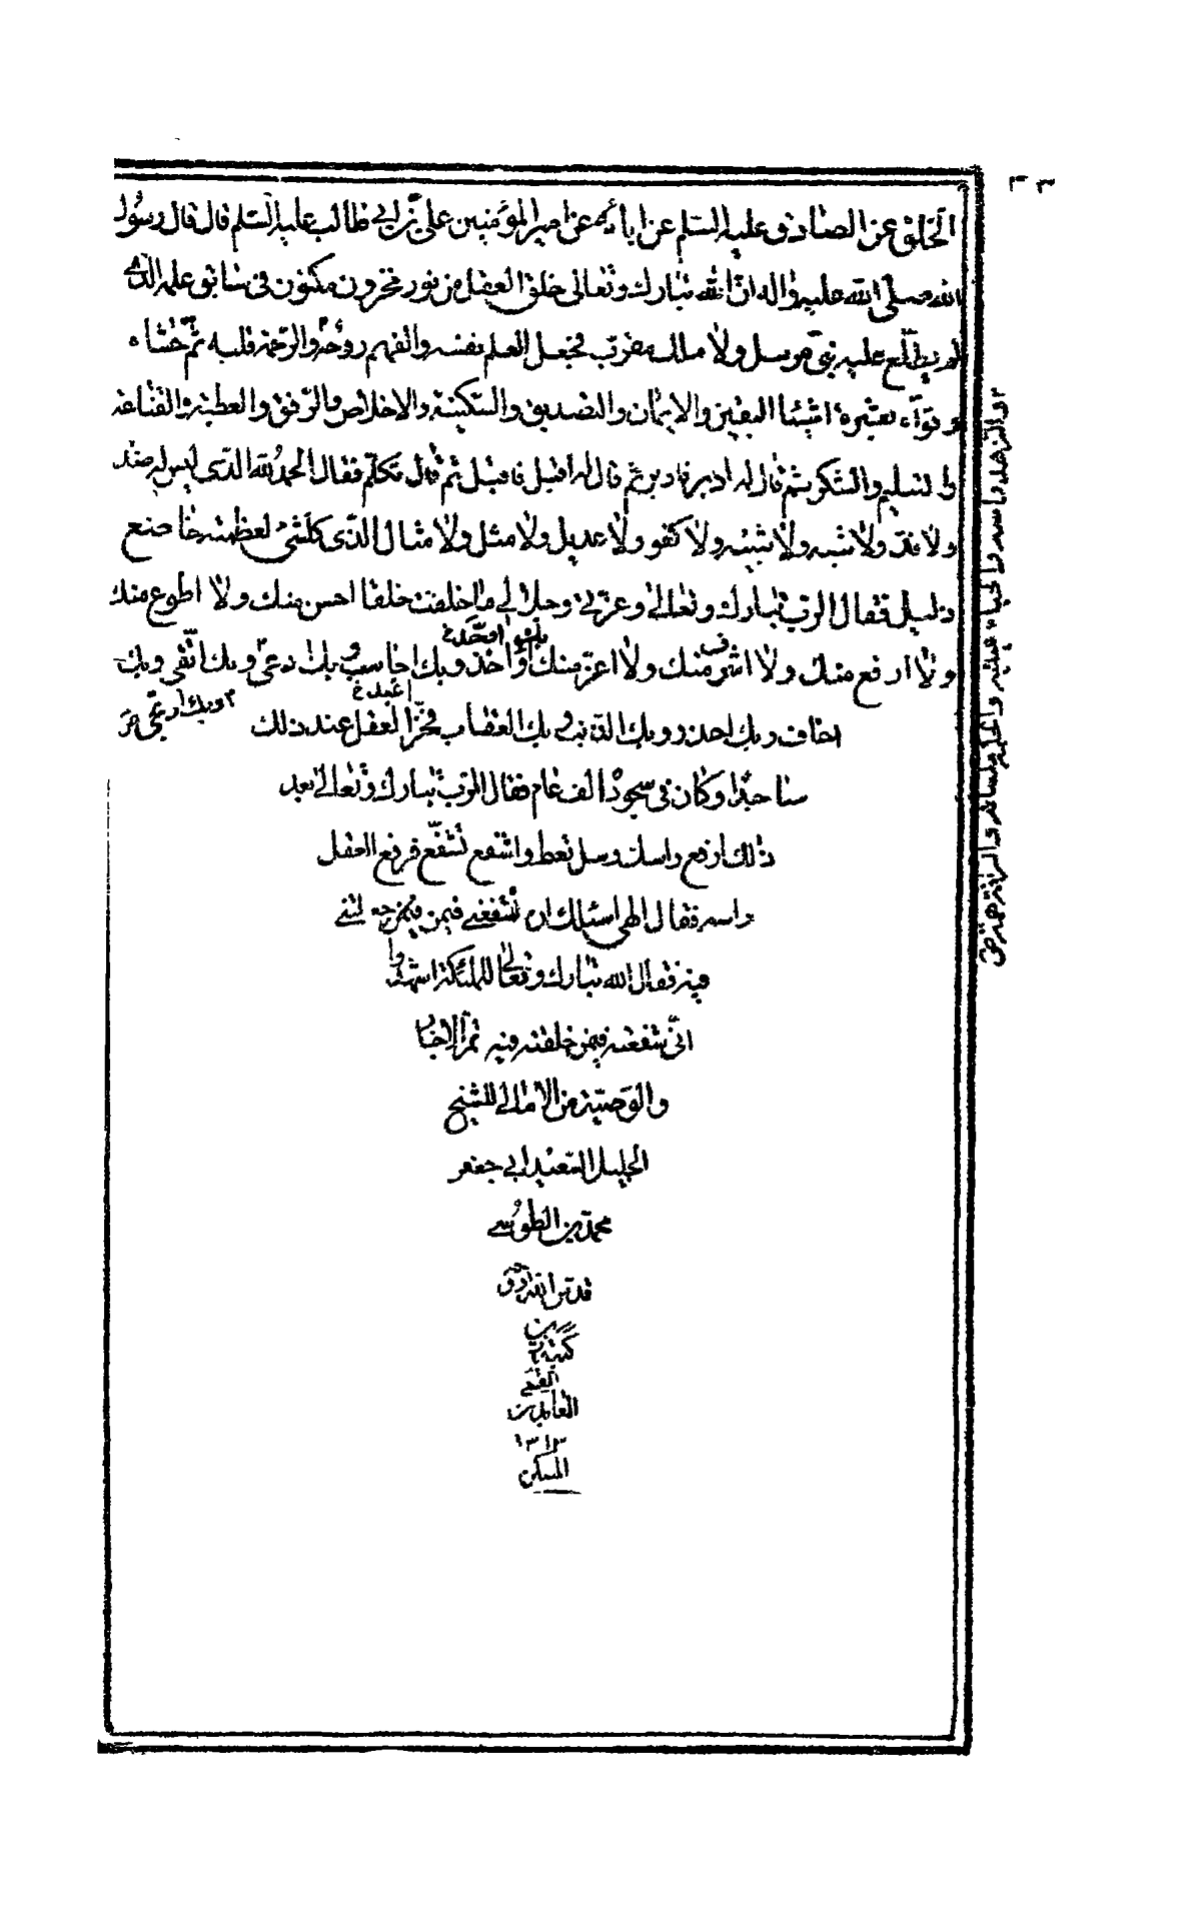 الخلق عن الصادق عليه السلم عن ابائه عن امير المؤمنين على بن ابي طالب عليه السلم قال قال رسول
الله صلى الله عليه واله ان الله تبارك وتعالى خلق العقل من نور مخزون مكنون فى سابق علمه الذى
لم يطلع عليه نبى مرسل ولا ملك مقرب فجعل العلم نفسه والفهم روحه والرحمة قلبه ثم حشاه
وقواه بعشرة اشيئا اليقين والايمان والتصديق والسكينة والاخلاص والرفق والعطية والقناعة
والتسليم والشكر ثم قال له ادبر فادبر ثم قال له اقبل فاقبل ثم قال تكلم فقال الحمد لله الذى ليس له ضد
ولا ند ولا شبه ولا شبيه ولا كفو ولا عديل ولا مثل ولا مثال الذى كل شئ لعظمته خاضع
ذليل فقال الرب تبارك وتعالى وعزتي وجلالي ما خلقت خلقا احسن منك ولا اطوع منك
ولا ارفع منك ولا اشرف منك ولا اعز منك بك اواخذ وبك احاسب وبك ادعى وبك اتقى وبك
اخاف وبك احذر وبك الذنب وبك العقاب فخر العقل عند ذلك
ساجدا وكان فى سجوده الف عام فقال الرب تبارك وتعالى بعد
ذلك ارفع راسك وسل تعط واشفع تشفع فرفع العقل
راسه فقال الهى اسئلك ان تشفعني فيمن خلقتني
فيه فقال الله تبارك وتعالى للملئكة اشهدوا
انى شفعته فيمن خلقته فيه تم الاخبار
والوصية من الامالي للشيخ
الجليل السعيد ابي جعفر
محمد بن الطوسي
قدس الله روحه
كتبه
العابدين
١٣١٣
المسكين